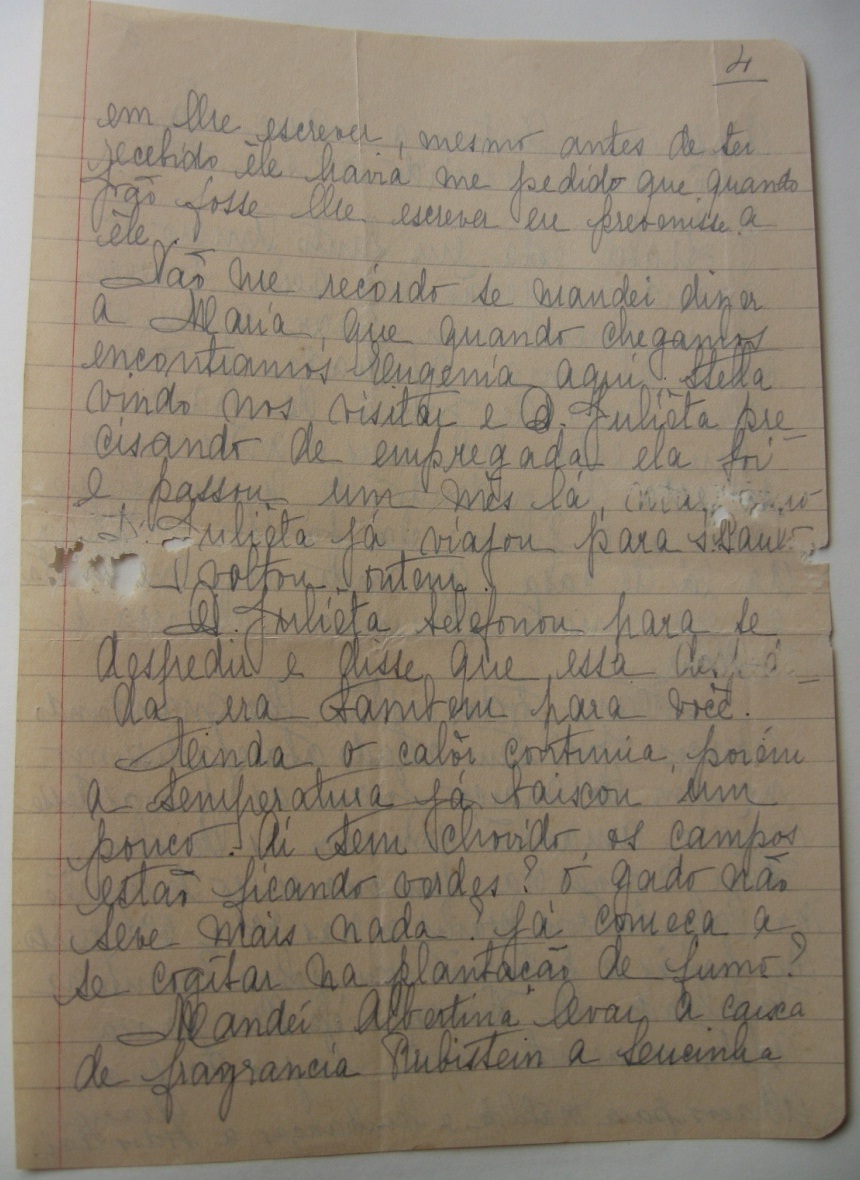 4
em lhe escrever, mesmo antes de ter
recebido êle havia me pedido que quando
fosse lhe escrever eu prevenisse a
êle.
Não me recórdo se mandei dizer
a Maria, que quando chegamos
encontramos Eugenia aqui. Stella
vindo nos visitar e D. Juliêta pre-
cisando de empregada ela foi
e passou um mês lá,
D. Juliêta já viajou para S. Paulo
voltou ontem.
D. Juliêta telefonou para se
despedir e disse que essa despedi-
da era tambem para você.
Ainda o calôr continua, porém
a temperatura já baixou um
pouco. Ai tem chovido, os campos
estão ficando verdes? o gado não
teve mais nada? já começa a
se cogitar na plantação de fumo?
Mandei Albertina levar a caixa
de fragrancia Rubistein a